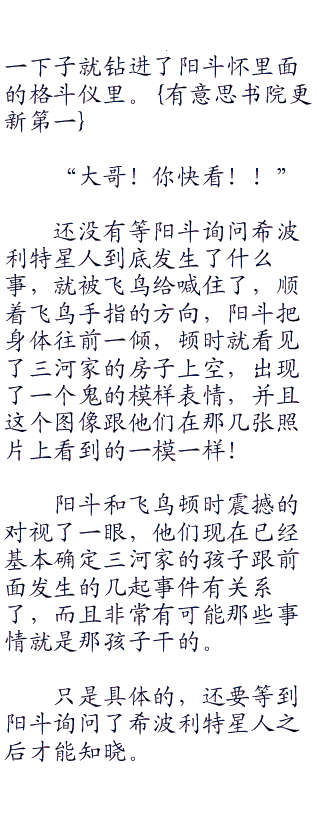 一下子就钻进了阳斗怀里面
的格斗仪里。{有意思书院更
新第一}
“大哥！你快看！！”
还没有等阳斗询问希波
利特星人到底发生了什么
事，就被飞鸟给喊住了，顺
着飞鸟手指的方向，阳斗把
身体往前一倾，顿时就看见
了三河家的房子上空，出现
了一个鬼的模样表情，并且
这个图像跟他们在那几张照
片上看到的一模一样！
阳斗和飞鸟顿时震撼的
对视了一眼，他们现在已经
基本确定三河家的孩子跟前
面发生的几起事件有关系
了，而且非常有可能那些事
情就是那孩子干的。
只是具体的，还要等到
阳斗询问了希波利特星人之
后才能知晓。